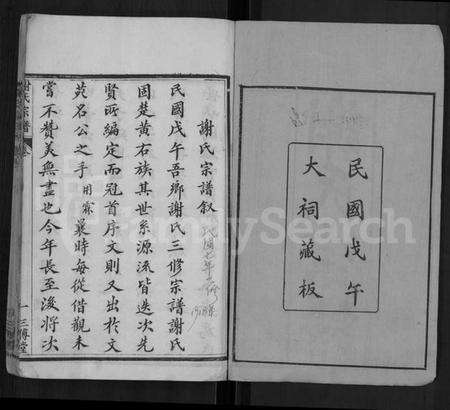 民國戊午
大祠藏板
謝氏宗譜叙
民國戊午吾鄉謝氏三修宗譜謝氏
固楚黃右族其世系源流皆迭次先
賢所編定而冠首序文則又出於文
苑名公之手用霖曩時每從借觀未
嘗不贊美無盡也今年長至後將次
謝氏宗譜
一
三傳堂
FamilySearch